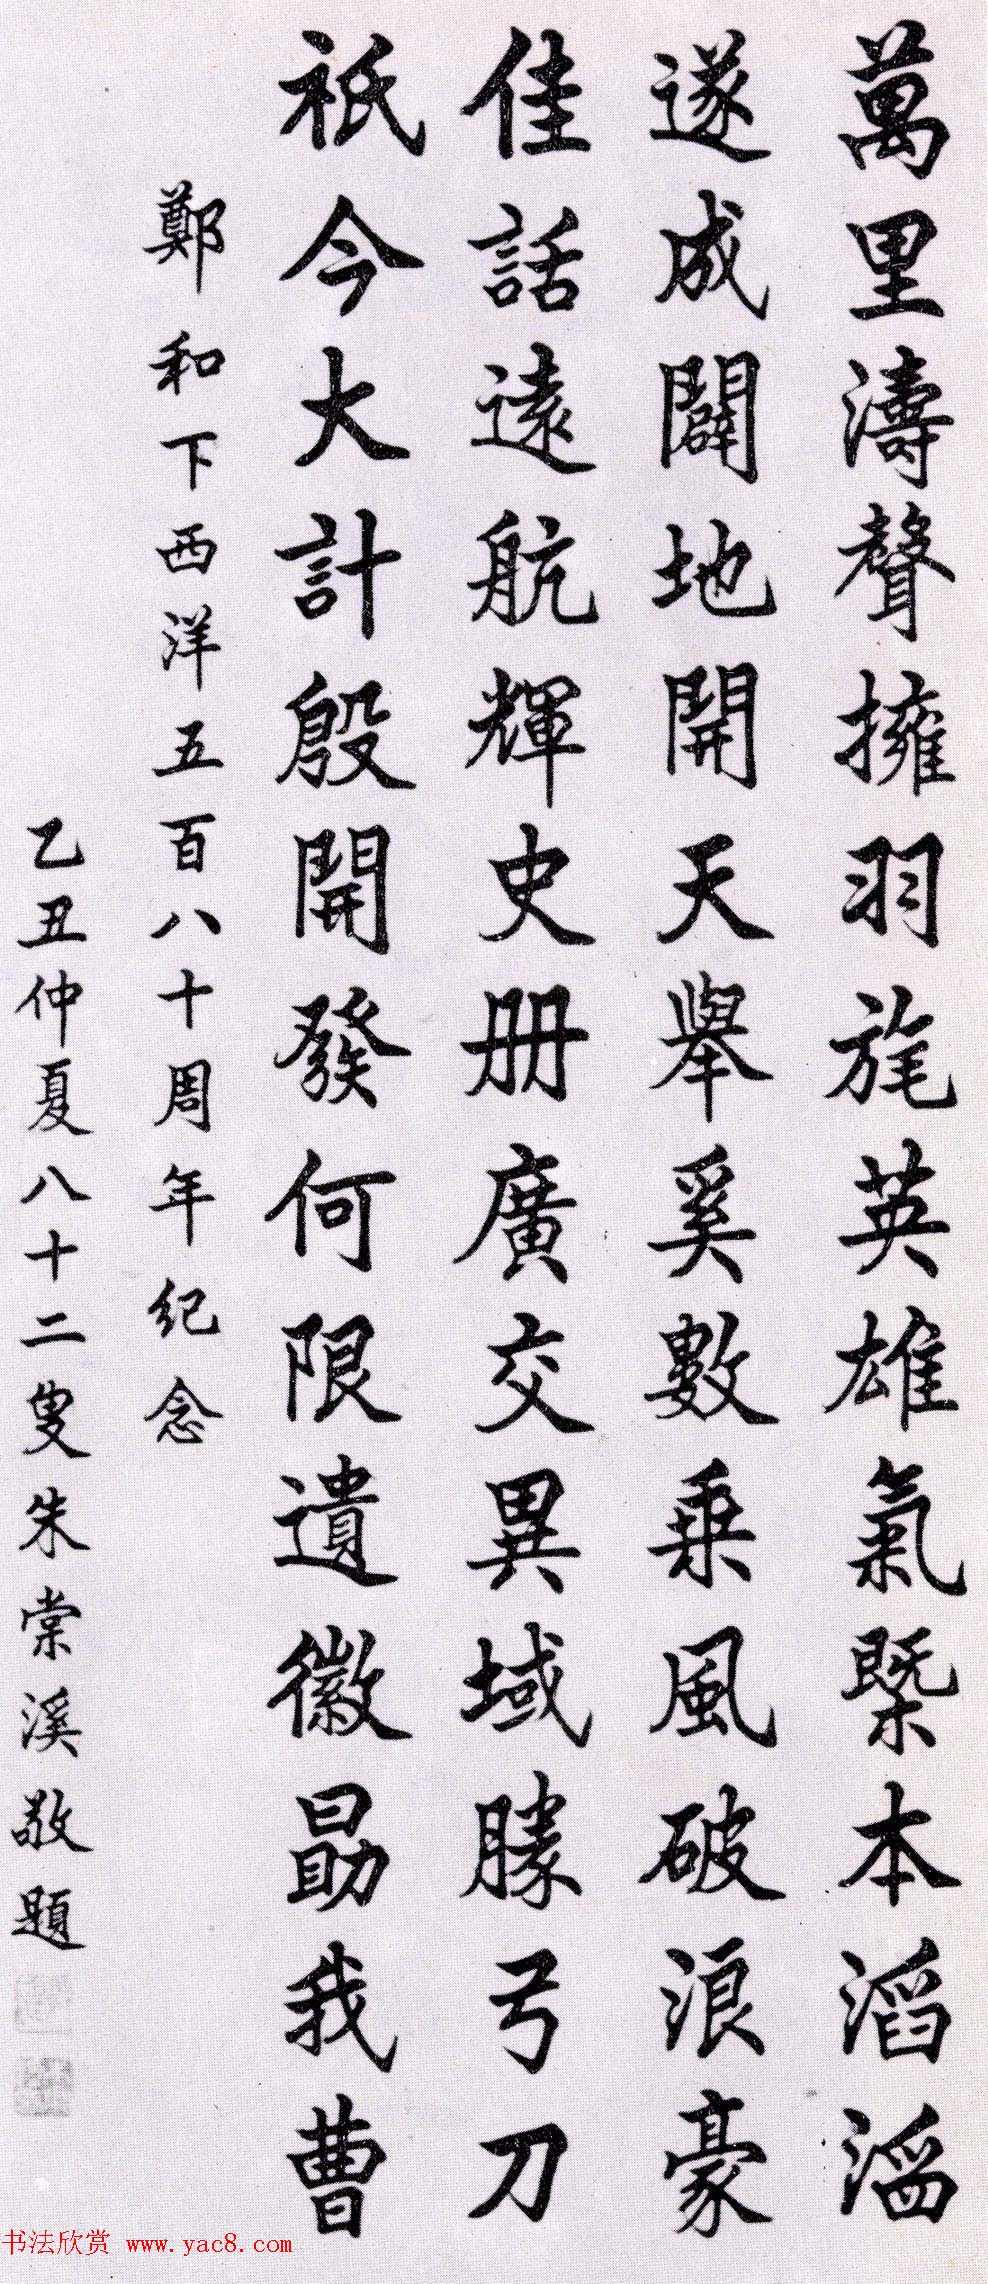 萬里濤聲擁羽旄英雄氣槩本滔滔
遂成闢地開天舉奚數乗風破浪豪
佳話遠航輝史册廣交異域勝弓刀
祇今大計殷開發何限遺徽勗我曹
鄭和下西洋五百八十周年纪念
乙丑仲夏八十二叟朱棠溪敬題
书法欣赏 www.yac8.com